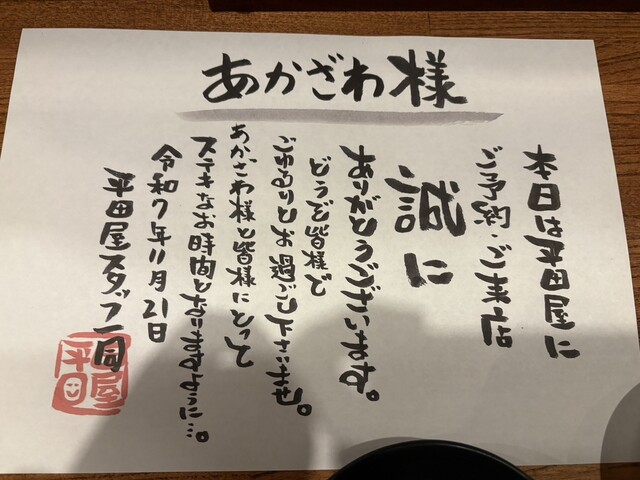 あかざわ様
本日は平田屋に
ご予約・ご来店
誠に
ありがとうございます。
どうぞ皆様で
ごゆるりとお過ごし下さいませ。
あかざわ様と皆様にとって
ステキなお時間となりますように…。
令和7年11月21日
平田屋スタッフ一同
平田屋